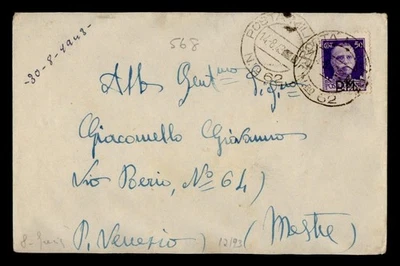 -30-8-1943-
568
POSTA MILITARE
62
50
P.M.
62
Alla Gent.ma S.g.na
Giacomello Giovanna
Via Berio, No 64)
P. Venezia) (Mestre)
12/93